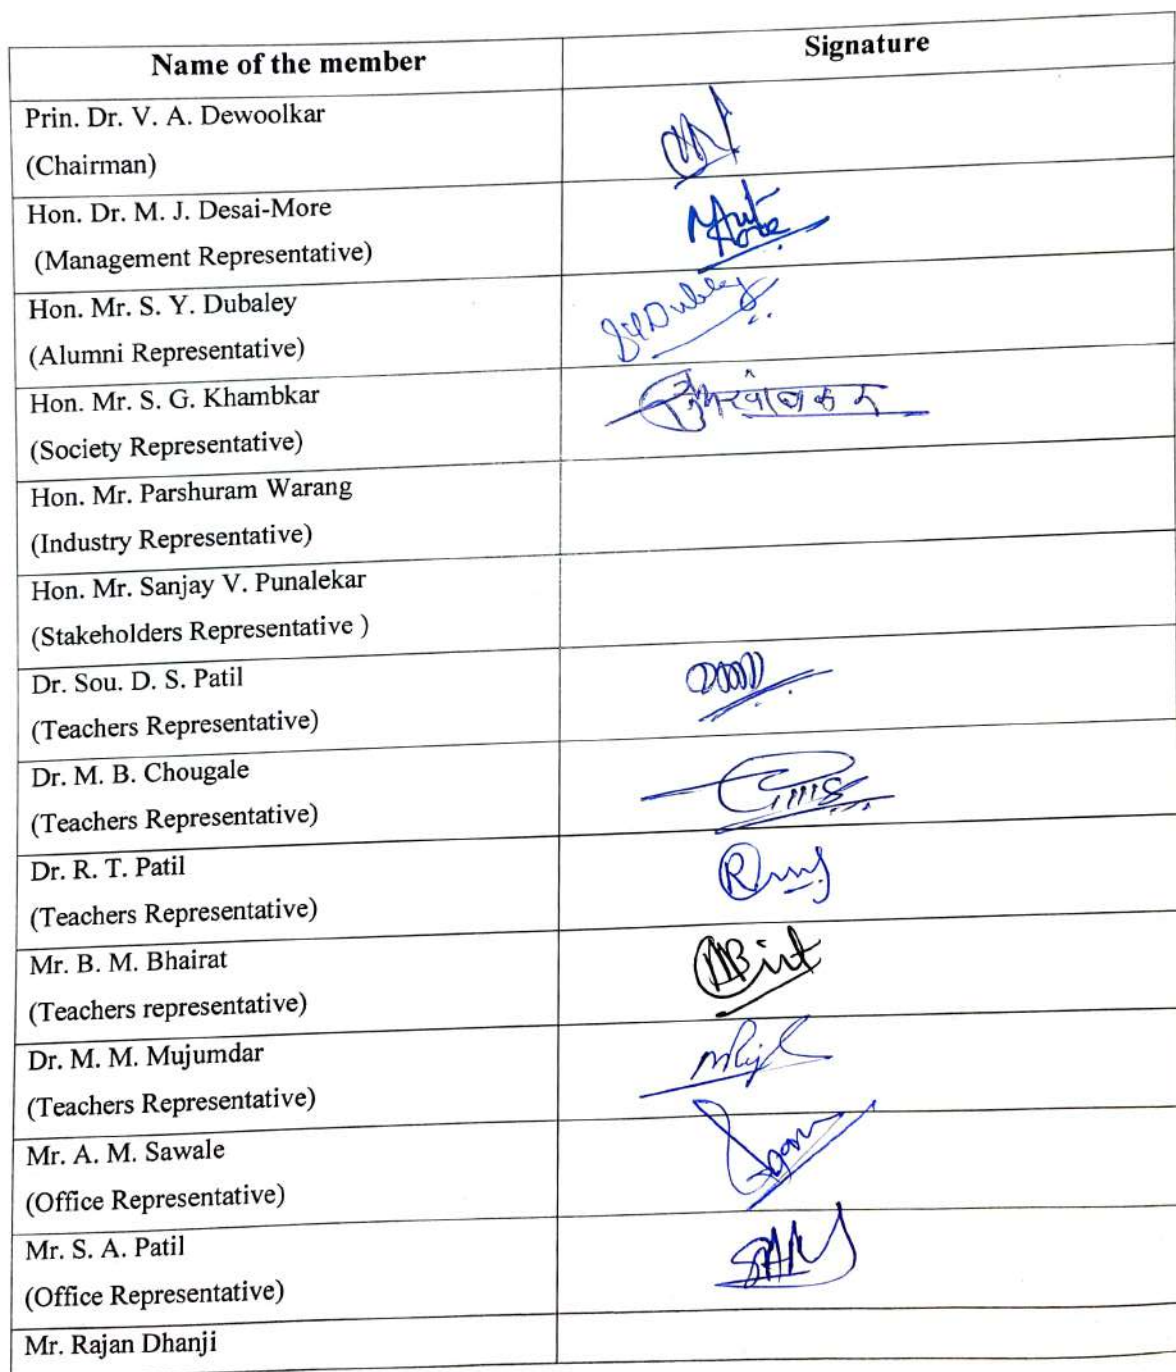 Name of the member Signature
Prin. Dr. V. A. Dewoolkar
(Chairman)
Hon. Dr. M. J. Desai-More
(Management Representative)
Hon. Mr. S. Y. Dubaley
(Alumni Representative)
SYDubaley
Hon. Mr. S. G. Khambkar
(Society Representative)
Hon. Mr. Parshuram Warang
(Industry Representative)
Hon. Mr. Sanjay V. Punalekar
(Stakeholders Representative )
Dr. Sou. D. S. Patil
(Teachers Representative)
Dr. M. B. Chougale
(Teachers Representative)
Dr. R. T. Patil
(Teachers Representative)
Mr. B. M. Bhairat
(Teachers representative)
Dr. M. M. Mujumdar
(Teachers Representative)
Mr. A. M. Sawale
(Office Representative)
Mr. S. A. Patil
(Office Representative)
Mr. Rajan Dhanji